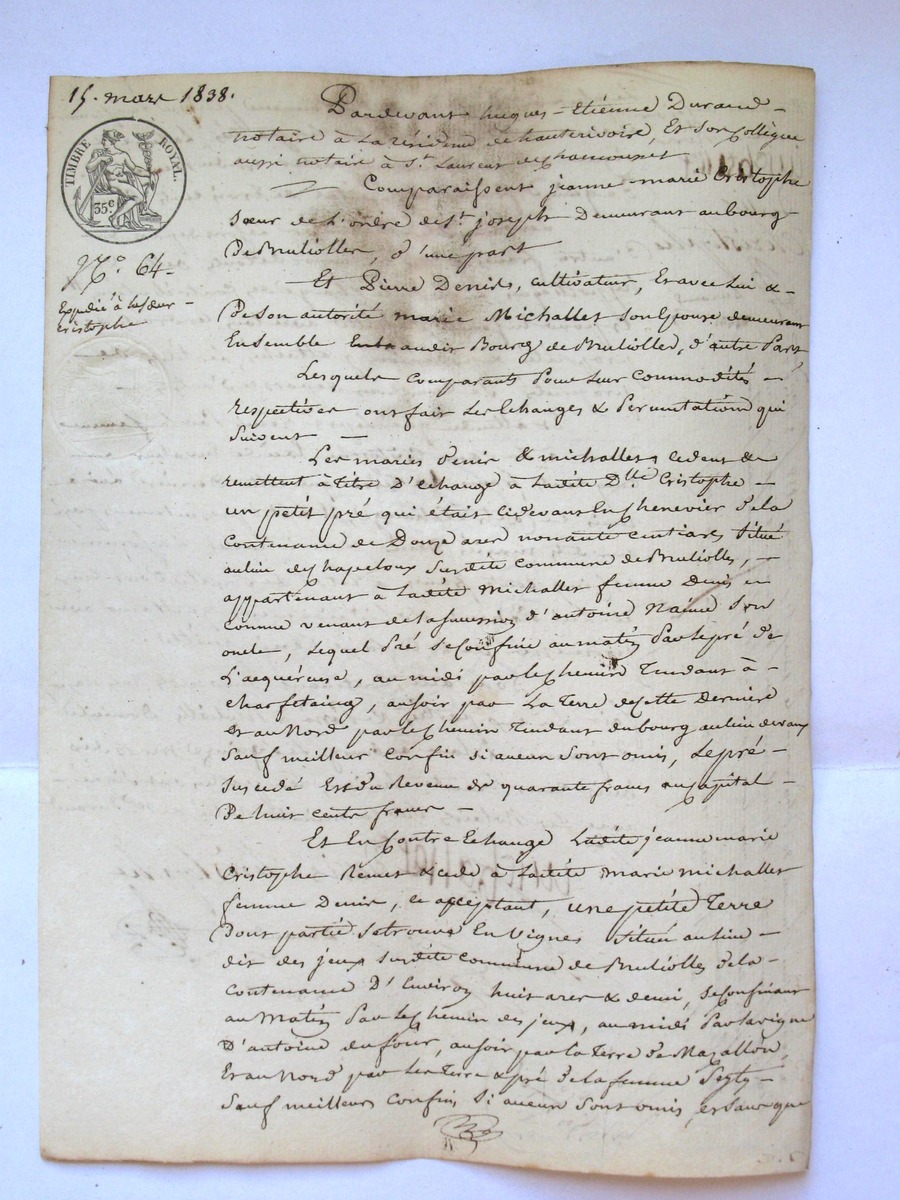 15. mars 1838.
TIMBRE ROYAL.
35c
N°. 64-
Expédié à la Sœur -
Cristophe
Pardevant hugues - Etienne Durand -
notaire à la résidence de hauterivoire, Et son Collègue
aussi notaire à St. Laurent de chamousset
Comparaissent jeanne marie Cristophe
Sœur de l'ordre de St. joseph Demeurant au bourg
De Brulioller, d'une part
Et Pierre Denis, cultivateur, Et avec Lui &
De son autorité marie Michallet son Epouse demeurant
Ensemble audit Bourg de Brulioller, d'autre Part,
Lesquels comparants Pour Leur commodités -
respectives ont fait Les Echanges & Permutations qui
Suivent -
Les mariés Denis & michallet cedent &
remettent à titre D'echange à Ladite Dlle Cristophe -
un petit pré qui était cidevant En chenevier De la
Contenance de Douze ares nonante centiares Situé
au lieu de chapeloux Susdite commune de Brulioller, -
appartenant à Ladite Michallet femme Denis
comme venant de la Succession d'antoine Naime Son
oncle, Lequel Pré Se Confine au matin Par Le pré de
L'acquéreuse, au midi par le chemin Tendant à -
charfetaing, au soir par La Terre de cette Dernière
et au Nord par le chemin Tendant du bourg au lieu
Sauf meilleurs Confins si aucun Sont omis, Le pré -
Sus cédé Est du Revenu de quarante francs au Capital -
De huit cents francs -
Et En Contre Echange Ladite jeanne marie
Cristophe Remet & cède à Ladite marie michallet
femme Denis, ce acceptant, une petite Terre
Dont partie Se trouve En Vignes Située au lieu -
dit des jeux Susdite Commune de Brulioller De la -
Contenance D'Environ huit ares & demi, Se Confinant
au Matin Par Le Chemin des jeux, au midi Par la vigne
D'antoine dufour, au soir par la Terre de Mazallon,
Et au Nord par Les Terre & pré De la femme -
Sauf meilleurs Confins Si aucun Sont omis, et Sans que